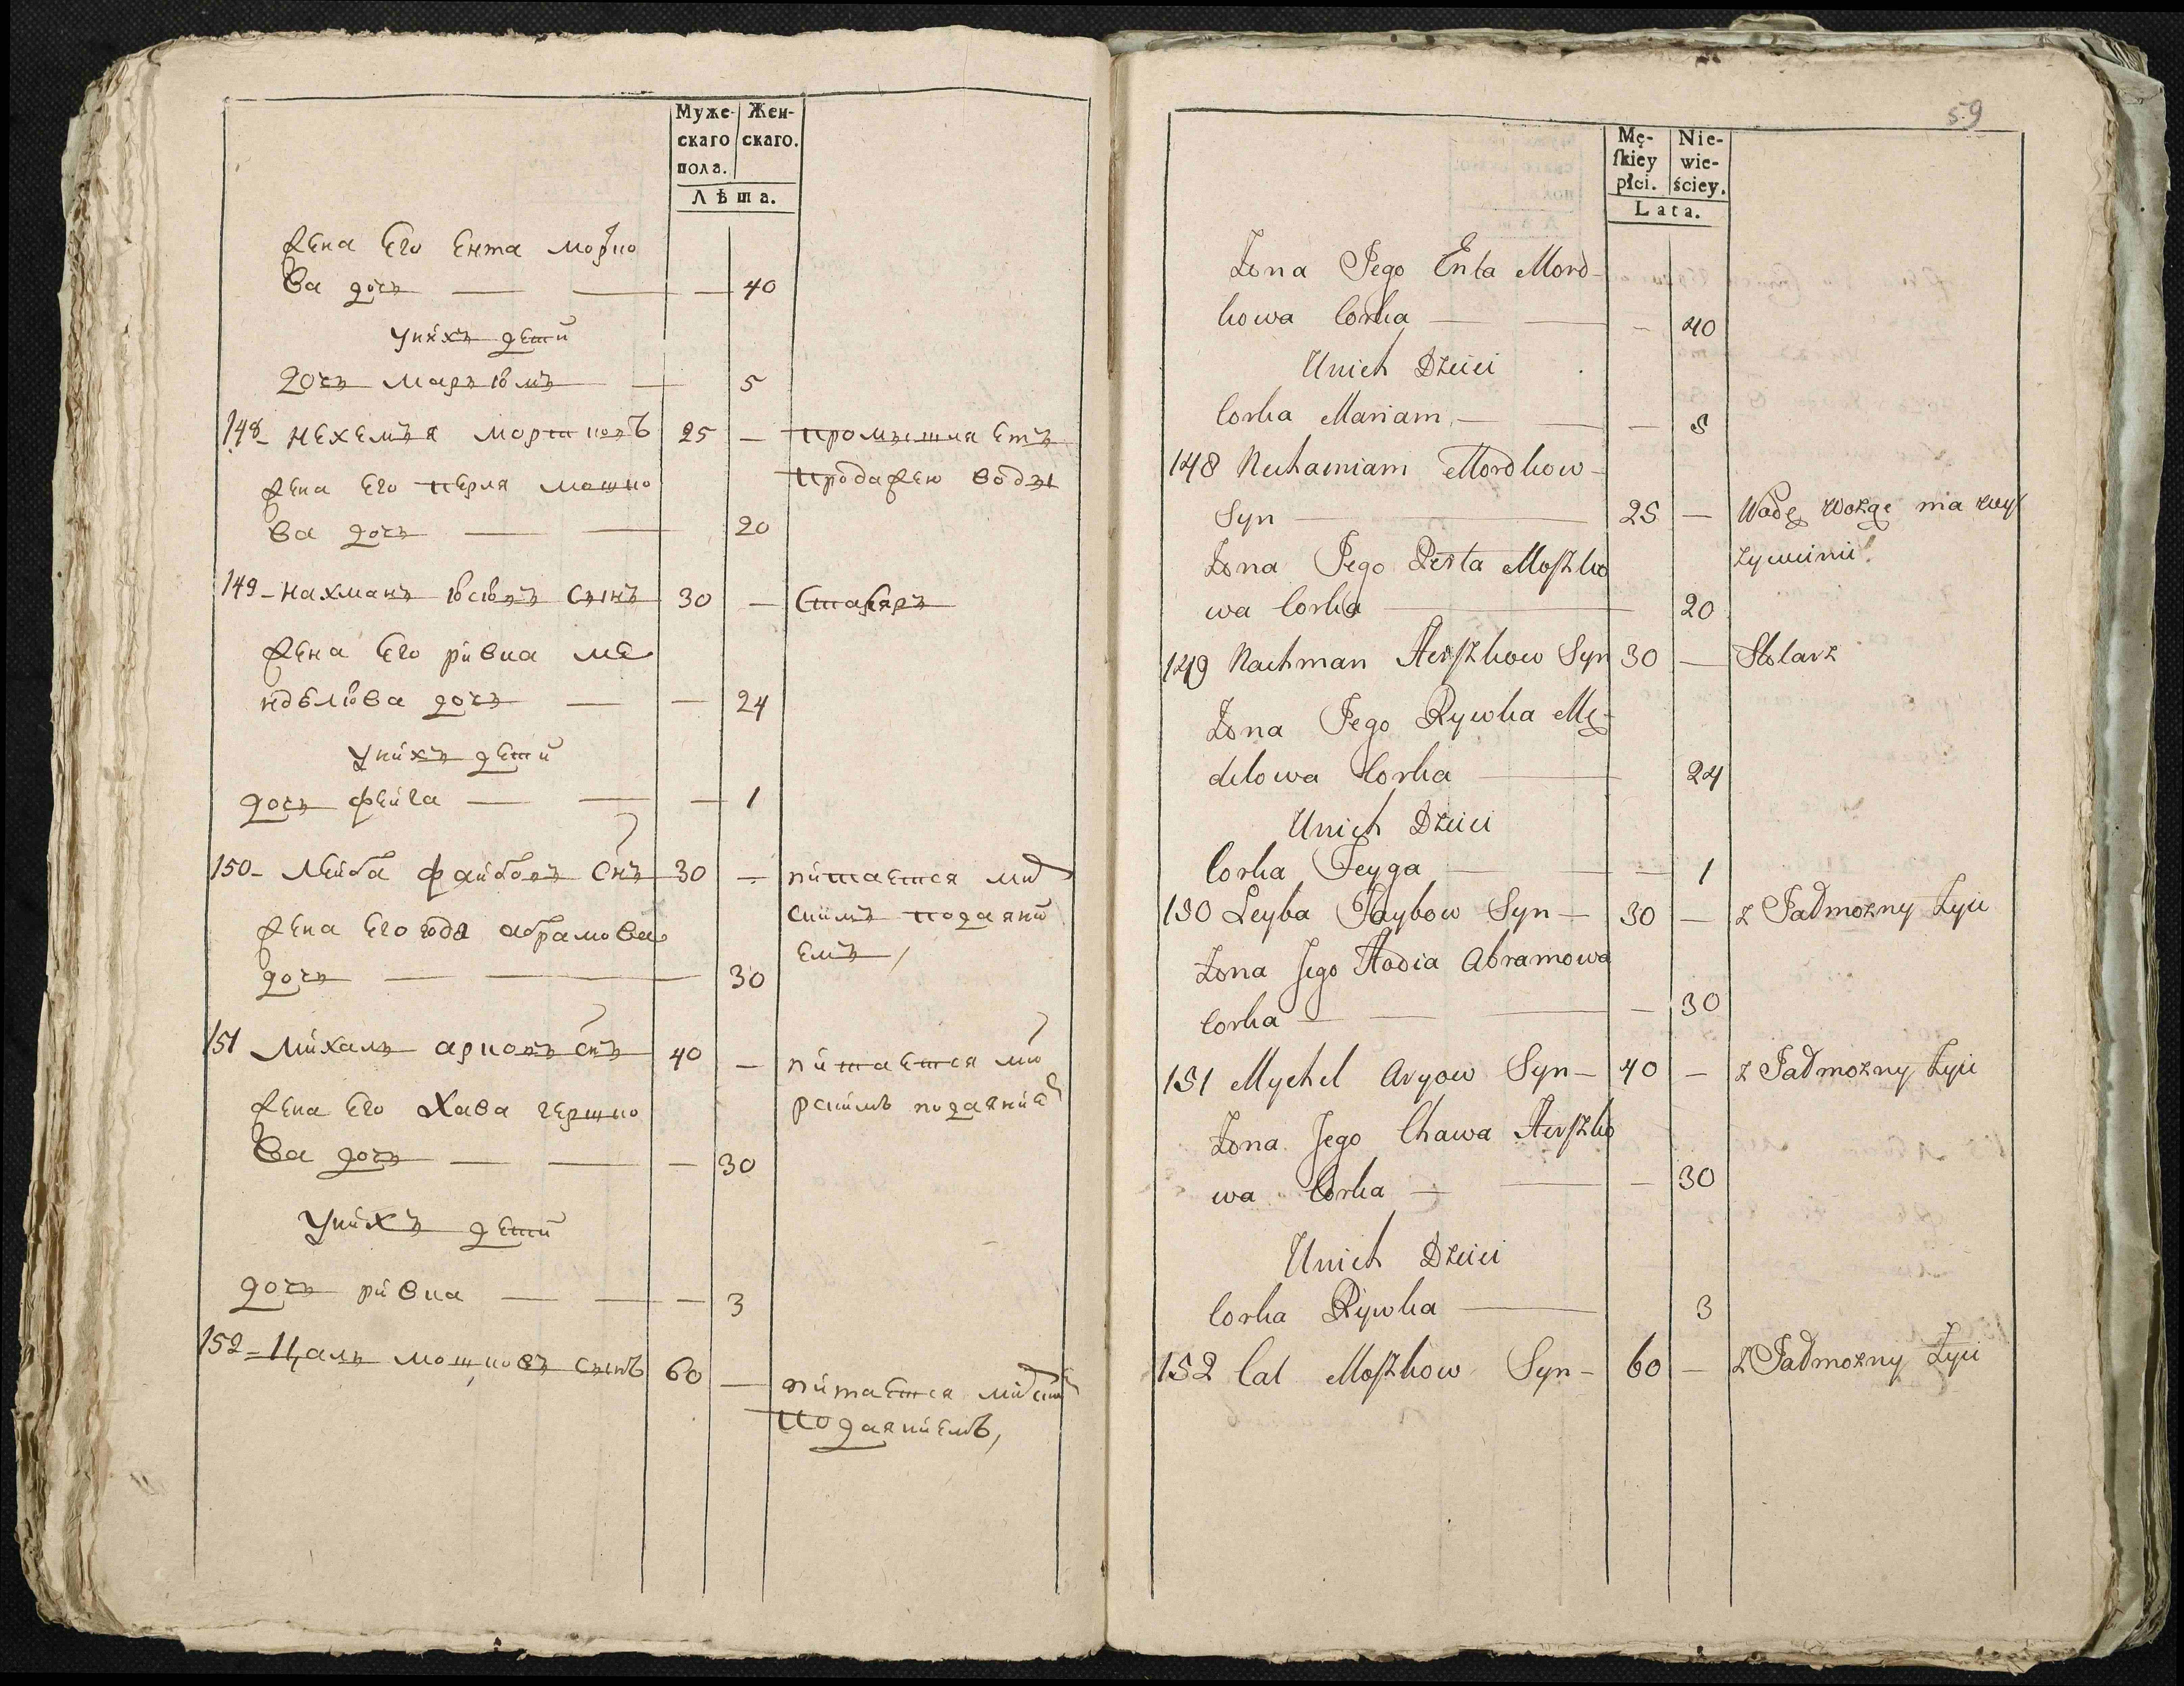 Муже-
скаго
пола.
Жен-
скаго.
Лѣта.
жена Его Ента мордко
ва дочь — — — 40
уних дети
дочь марьям — 5
148 - Нехемья мордков 25 — промышляет
продажею воды
жена Его перля мошко
ва дочь — — 20
149 - Нахман сын 30 — Столяр
жена Его ривка ме
ва дочь — — 24
уних дети
дочь фейга — — — 1
150 - Лейба файбов Снъ 30 — питается
подаяни
емъ,
жена Его года абрамова
дочь — — 30
151 Михаль сн 40 — питается ми
рским подаяние
жена Его Хава гершко
ва дочь — — — 30
Уних дети
дочь ривка — — — 3
152 - Цаль мошков сынъ 60 — питается
подаяниемъ,
59
Mę-
ſkiey
płci.
Nie-
wie-
ściey.
Lata.
Żona Jego Enta Mord-
kowa Corka — — — 40
Unich Dzieci
Corka Mariam — — — 5
148 Nechamiam Mordkow-
Syn — 25 — Wodę wozge ma wyż
żywieniu
Żona Jego Perla Moſzko
wa Corka — 20
149 Nachman Herſzkow Syn 30 — Stolarz
Żona Jego Rywka Mę-
delowa Corka — 24
Unich Dzieci
Corka Feyga — — — 1
150 Leyba Faybow Syn — 30 — z Jadmozny Żyie
Żona Jego Hodia Abramowa
Corka — — — — 30
151 Mychel Aryow Syn — 40 — z Jadmozny Żyie
Żona Jego Chawa Herſzko
wa Corka — — — 30
Unich Dzieci
Corka Rywka — 3
152 Cal Moſzkow Syn — 60 — z Jadmozny Żyie